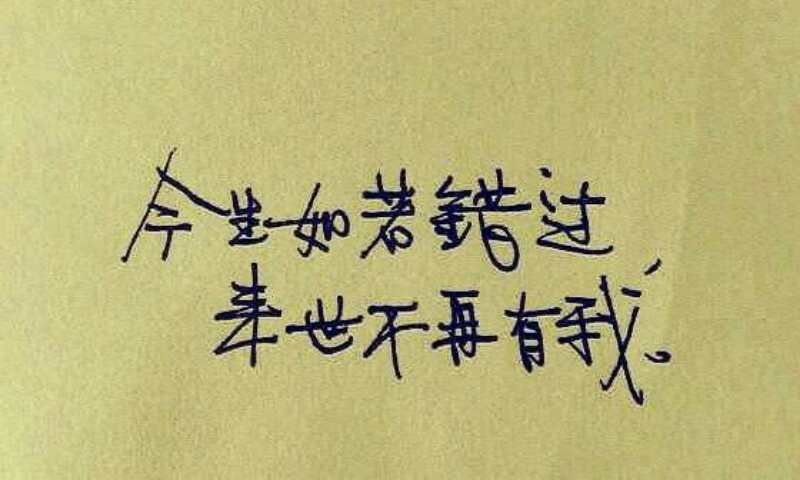 今生如若錯过
来世不再有我。